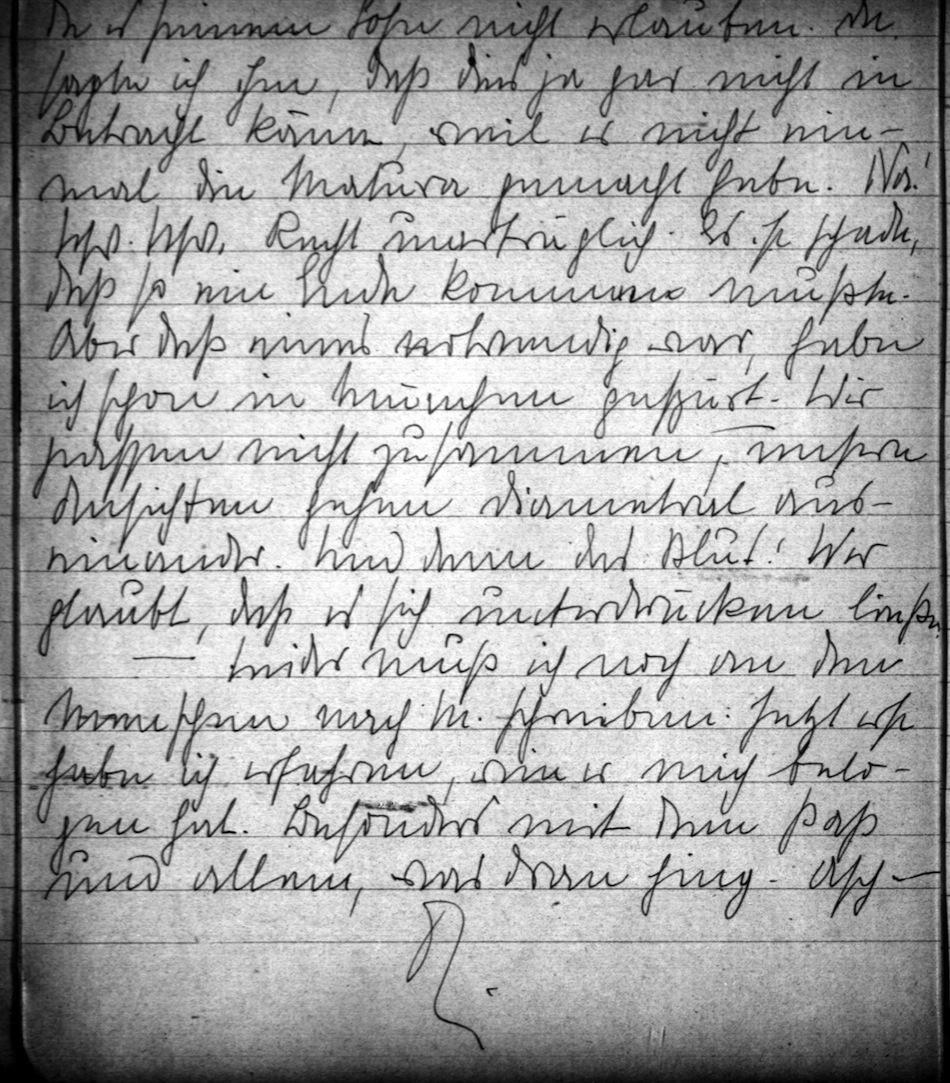 da er seinem Sohn nicht erlauben. Da
sagte ich ihm, daß dies ja gar nicht in
Betracht käme, weil er nicht ein-
mal die Matura gemacht habe. Na!
usw. usw. Recht unerträglich. Es ist schade,
daß so ein Ende kommen mußte.
Aber daß eines notwendig war, habe
ich schon in München gespürt. Wir
passen nicht zusammen, unsere
Ansichten gehen diametral aus-
einander. Und dann das Blut! Wer
glaubt, daß es sich unterdrücken ließe,
— Leider muß ich noch an den
Menschen nach M. schreiben. Jetzt erst
habe ich erfahren, wie er mich belo-
gen hat. Besonders mit dem Paß
und allem, was dran hing. Asch—
R.